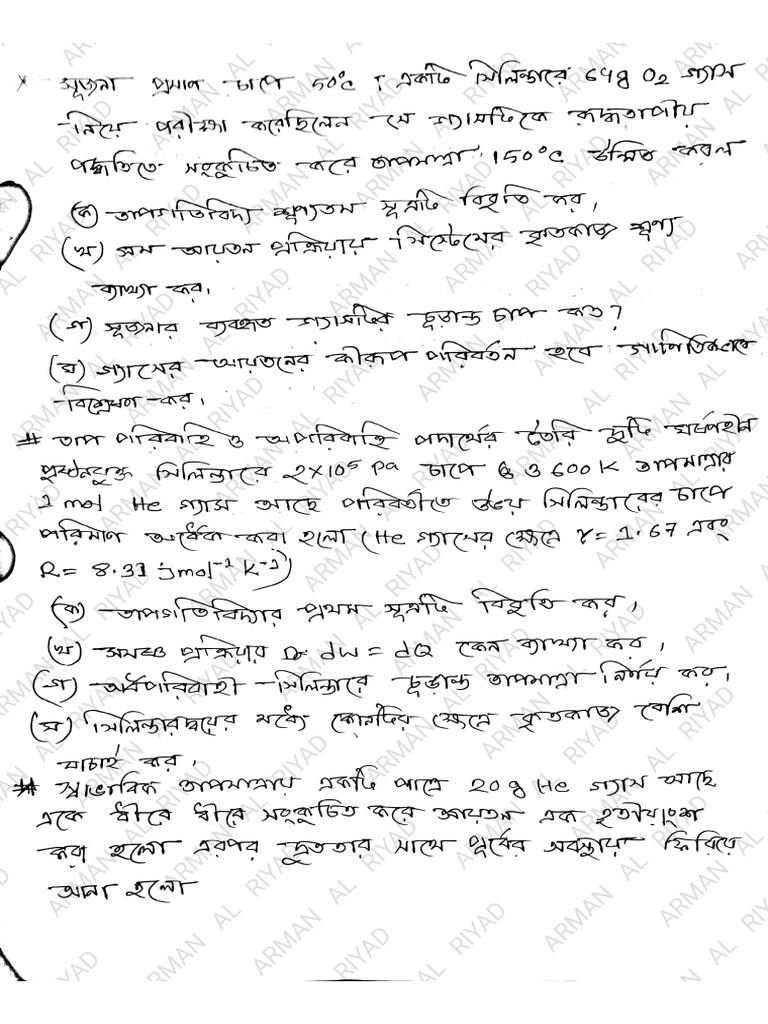 * সৃজনা প্রমাণ চাপে 50°C T একটি সিলিন্ডারে 64g O2 গ্যাস
নিয়ে পরীক্ষা করেছিলেন সে গ্যাসটিকে রূদ্ধতাপীয়
পদ্ধতিতে সংকুচিত করে তাপমাত্রা 150°C উন্নিত করল
(ক) তাপগতিবিদ্যা শূণ্যতম সূত্রটি বিবৃতি কর,
(খ) সম আয়তন প্রক্রিয়ায় সিস্টেমের কৃতকাজ শূণ্য
ব্যাখ্যা কর।
(গ) সৃজনার ব্যবহৃত গ্যাসটির চূড়ান্ত চাপ কত?
(ঘ) গ্যাসের আয়তনের কীরূপ পরিবর্তন হবে গাণিতিকভাবে
বিশ্লেষণ কর।
# তাপ পরিবাহি ও অপরিবাহি পদার্থের তৈরি দুটি ঘর্ষণহীন
পৃষ্টনযুক্ত সিলিন্ডারে 2×10⁵ Pa চাপে ও 600K তাপমাত্রার
1 mol He গ্যাস আছে পরিবর্তীতে উভয় সিলিন্ডারের চাপে
পরিমাণ অর্ধেক করা হলো (He গ্যাসের ক্ষেত্রে γ = 1.67 এবং
R = 8.31 jmol⁻¹ K⁻¹)
(ক) তাপগতিবিদ্যার প্রথম সূত্রটি বিবৃতি কর,
(খ) সমোষ্ণ প্রক্রিয়ায় dw = dQ কেন ব্যাখ্যা কর,
(গ) অর্ধপরিবাহী সিলিন্ডারে চূড়ান্ত তাপমাত্রা নির্ণয় কর,
(ঘ) সিলিন্ডারদ্বয়ের মধ্যে কোনটির ক্ষেত্রে কৃতকাজ বেশি
যাচাই কর,
# স্বাভাবিক তাপমাত্রায় একটি পাত্রে 20g He গ্যাস আছে
একে ধীরে ধীরে সংকুচিত করে আয়তন এক তৃতীয়াংশ
করা হলো এরপর দ্রুততার সাথে পূর্বের অবস্থায় ফিরিয়ে
আনা হলো
ARMAN AL RIYAD